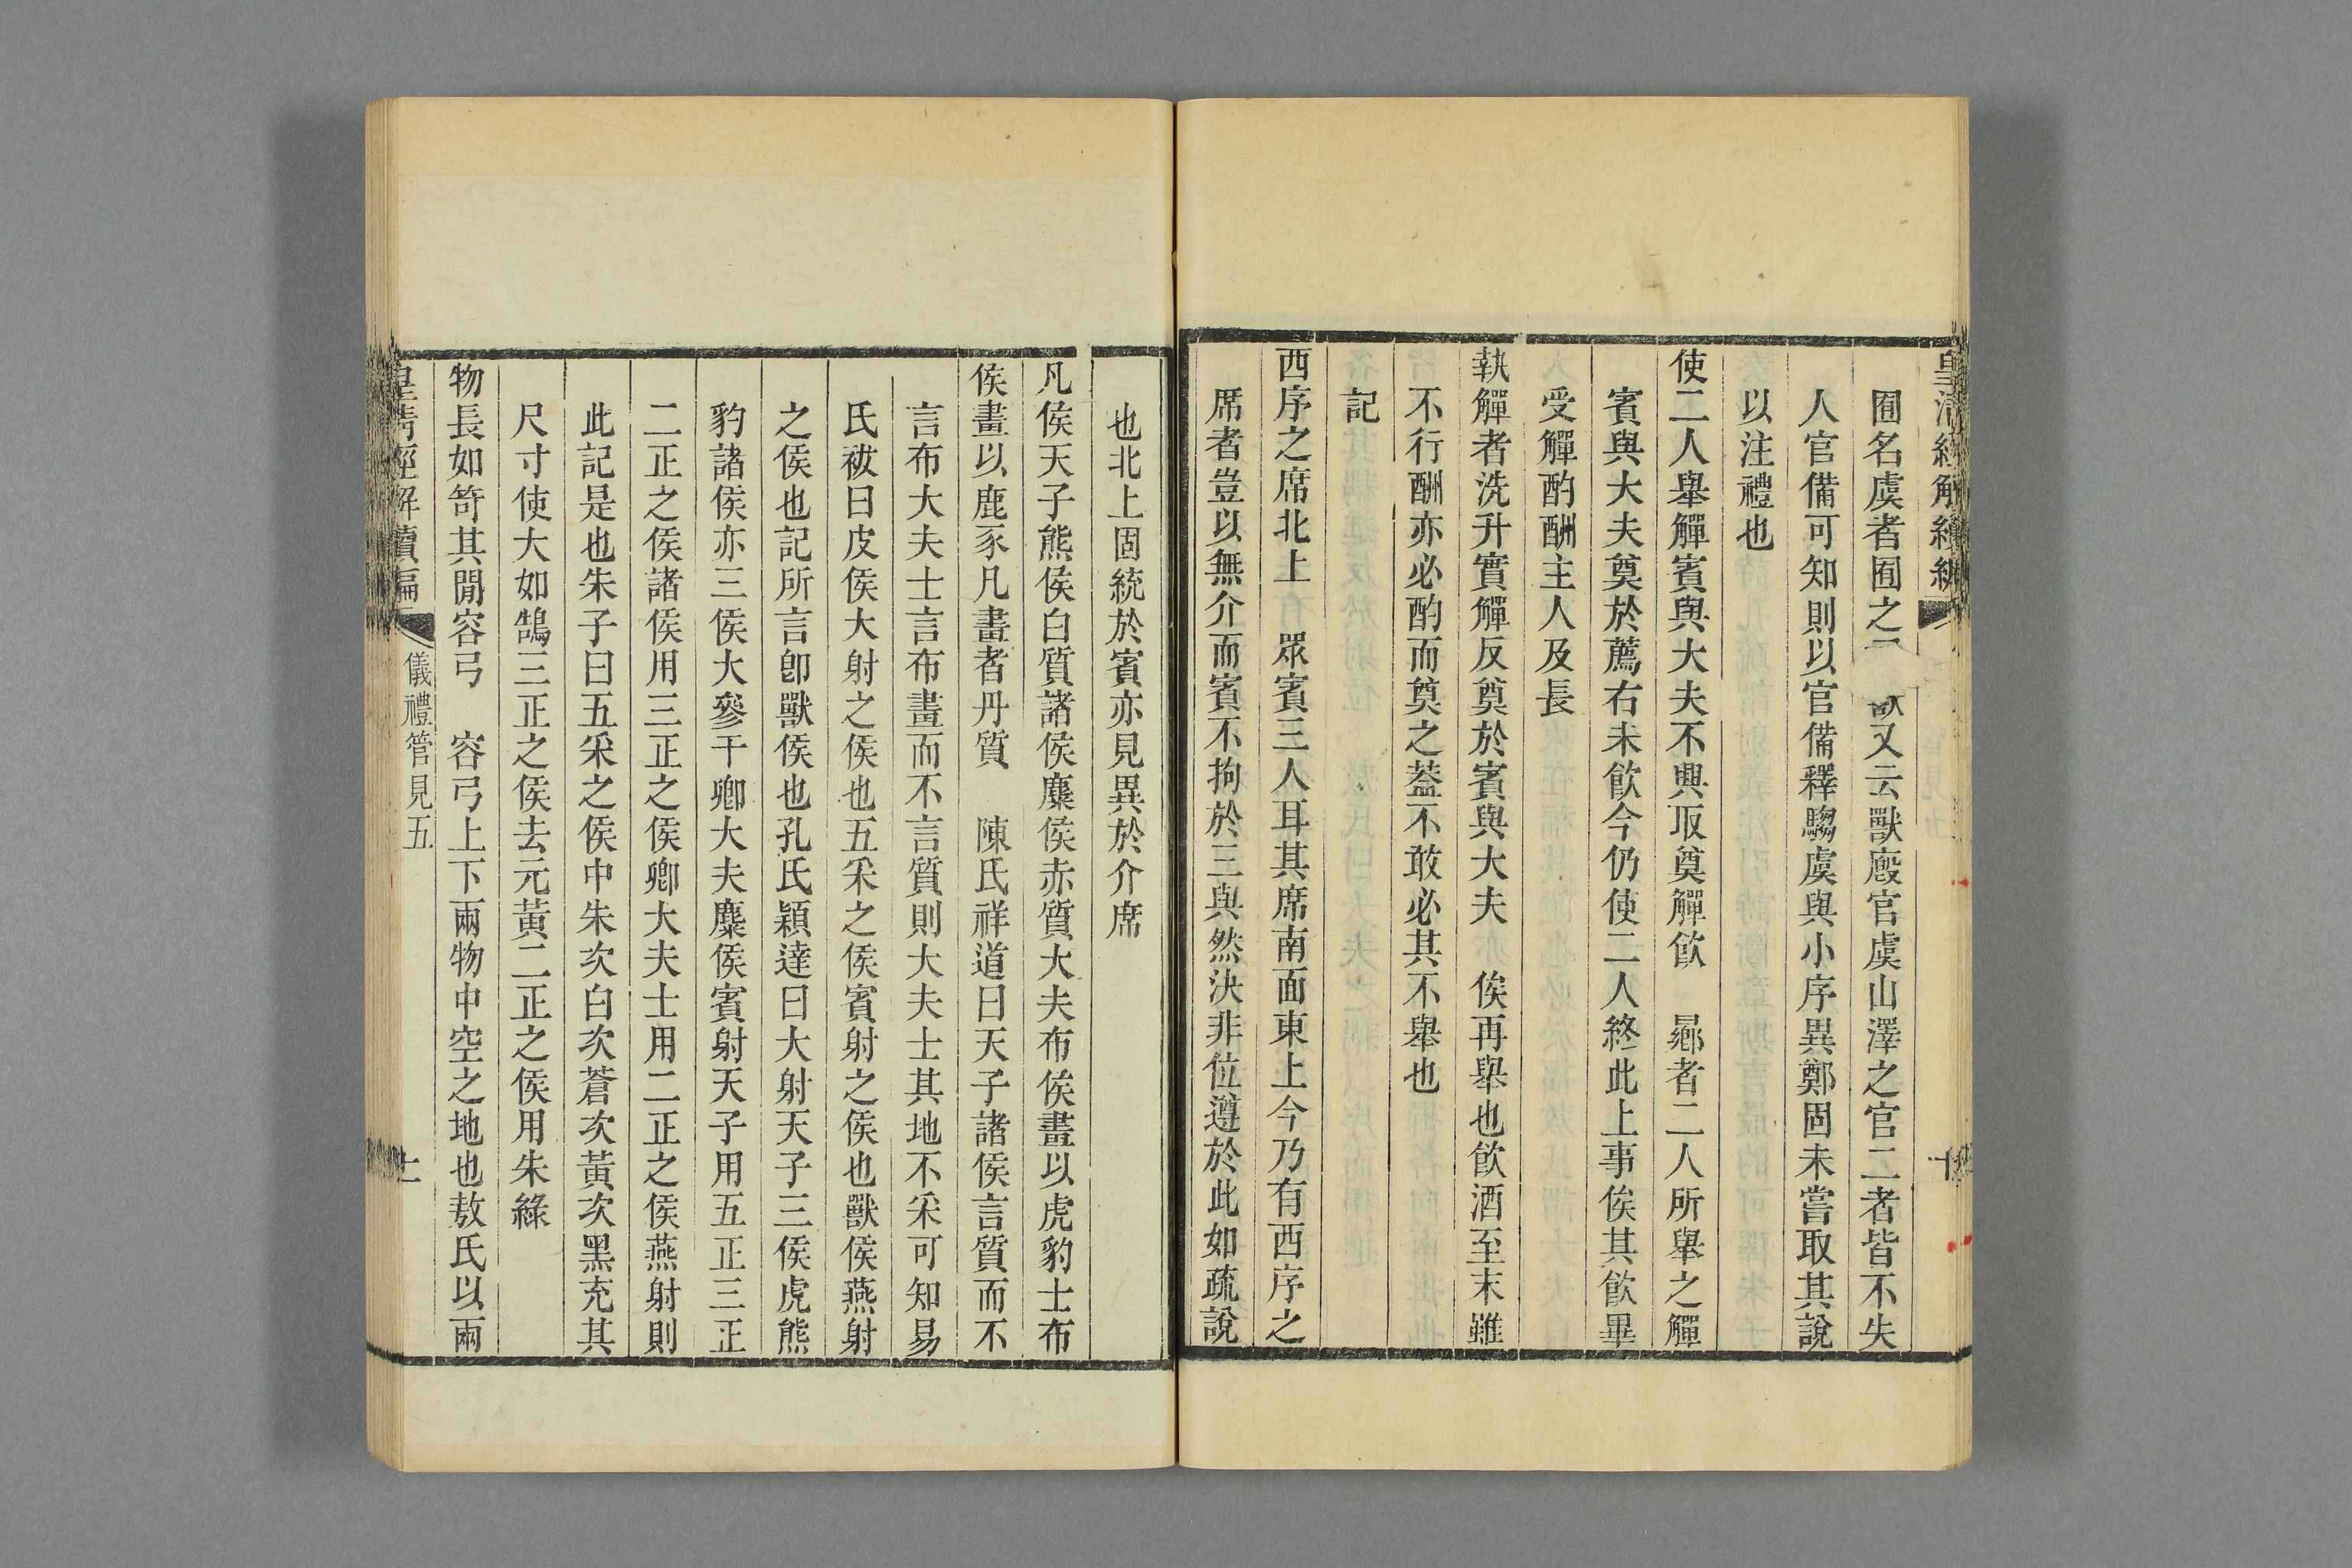 皇清經解續編
囿名虞者囿之又云獸廄官虞山澤之官二者皆不失
人官備可知則以官備釋騶虞與小序異鄭固未嘗取其說
以注禮也
使二人舉觶賓與大夫不興取奠觶飲　曏者二人所舉之觶
賓與大夫奠於薦右未飮今仍使二人終此上事俟其飮畢
受觶酌酬主人及長
執觶者洗升實觶反奠於賓與大夫　俟再舉也飮酒至末雖
不行酬亦必酌而奠之葢不敢必其不舉也
記
西序之席北上　眾賓三人耳其席南面東上今乃有西序之
席者豈以無介而賓不拘於三與然決非位遵於此如疏說
也北上固統於賓亦見異於介席
凡侯天子熊侯白質諸侯麋侯赤質大夫布侯畫以虎豹士布
侯畫以鹿豕凡畫者丹質　陳氏祥道曰天子諸侯言質而不
言布大夫士言布畫而不言質則大夫士其地不采可知易
氏祓曰皮侯大射之侯也五采之侯賓射之侯也獸侯燕射
之侯也記所言卽獸侯也孔氏穎達曰大射天子三侯虎熊
豹諸侯亦三侯大參干卿大夫麋侯賓射天子用五正三正
二正之侯諸侯用三正之侯卿大夫士用二正之侯燕射則
此記是也朱子曰五采之侯中朱次白次蒼次黃次黑充其
尺寸使大如鵠三正之侯去元黃二正之侯用朱綠
物長如笴其閒容弓　容弓上下兩物中空之地也敖氏以兩
皇清經解續編
儀禮管見五